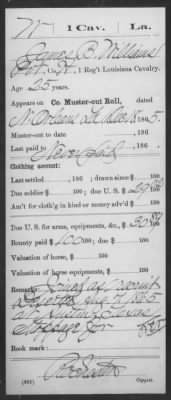 W | 1 Cav. | La.
James B. Williams
Pvt., Co. , 1 Reg't Louisiana Cavalry.
Age 25 years.
Appears on Co. Muster-out Roll, dated
N. Orleans La. Dec 18, 1865.
Muster-out to date , 186 .
Last paid to Never Paid , 186 .
Clothing account:
Last settled , 186 ; drawn since $ 100
Due soldier $ 100 ; due U. S. $
Am't for cloth'g in kind or money adv'd $ 100
Due U. S. for arms, equipments, &c., $
Bounty paid $ 100 ; due $ 100
Valuation of horse, $ 100
Valuation of horse equipments, $ 100
Remarks: Joined as Recruit
1865
at Texas
Stoppage for
Book mark:
(861) Copyist.